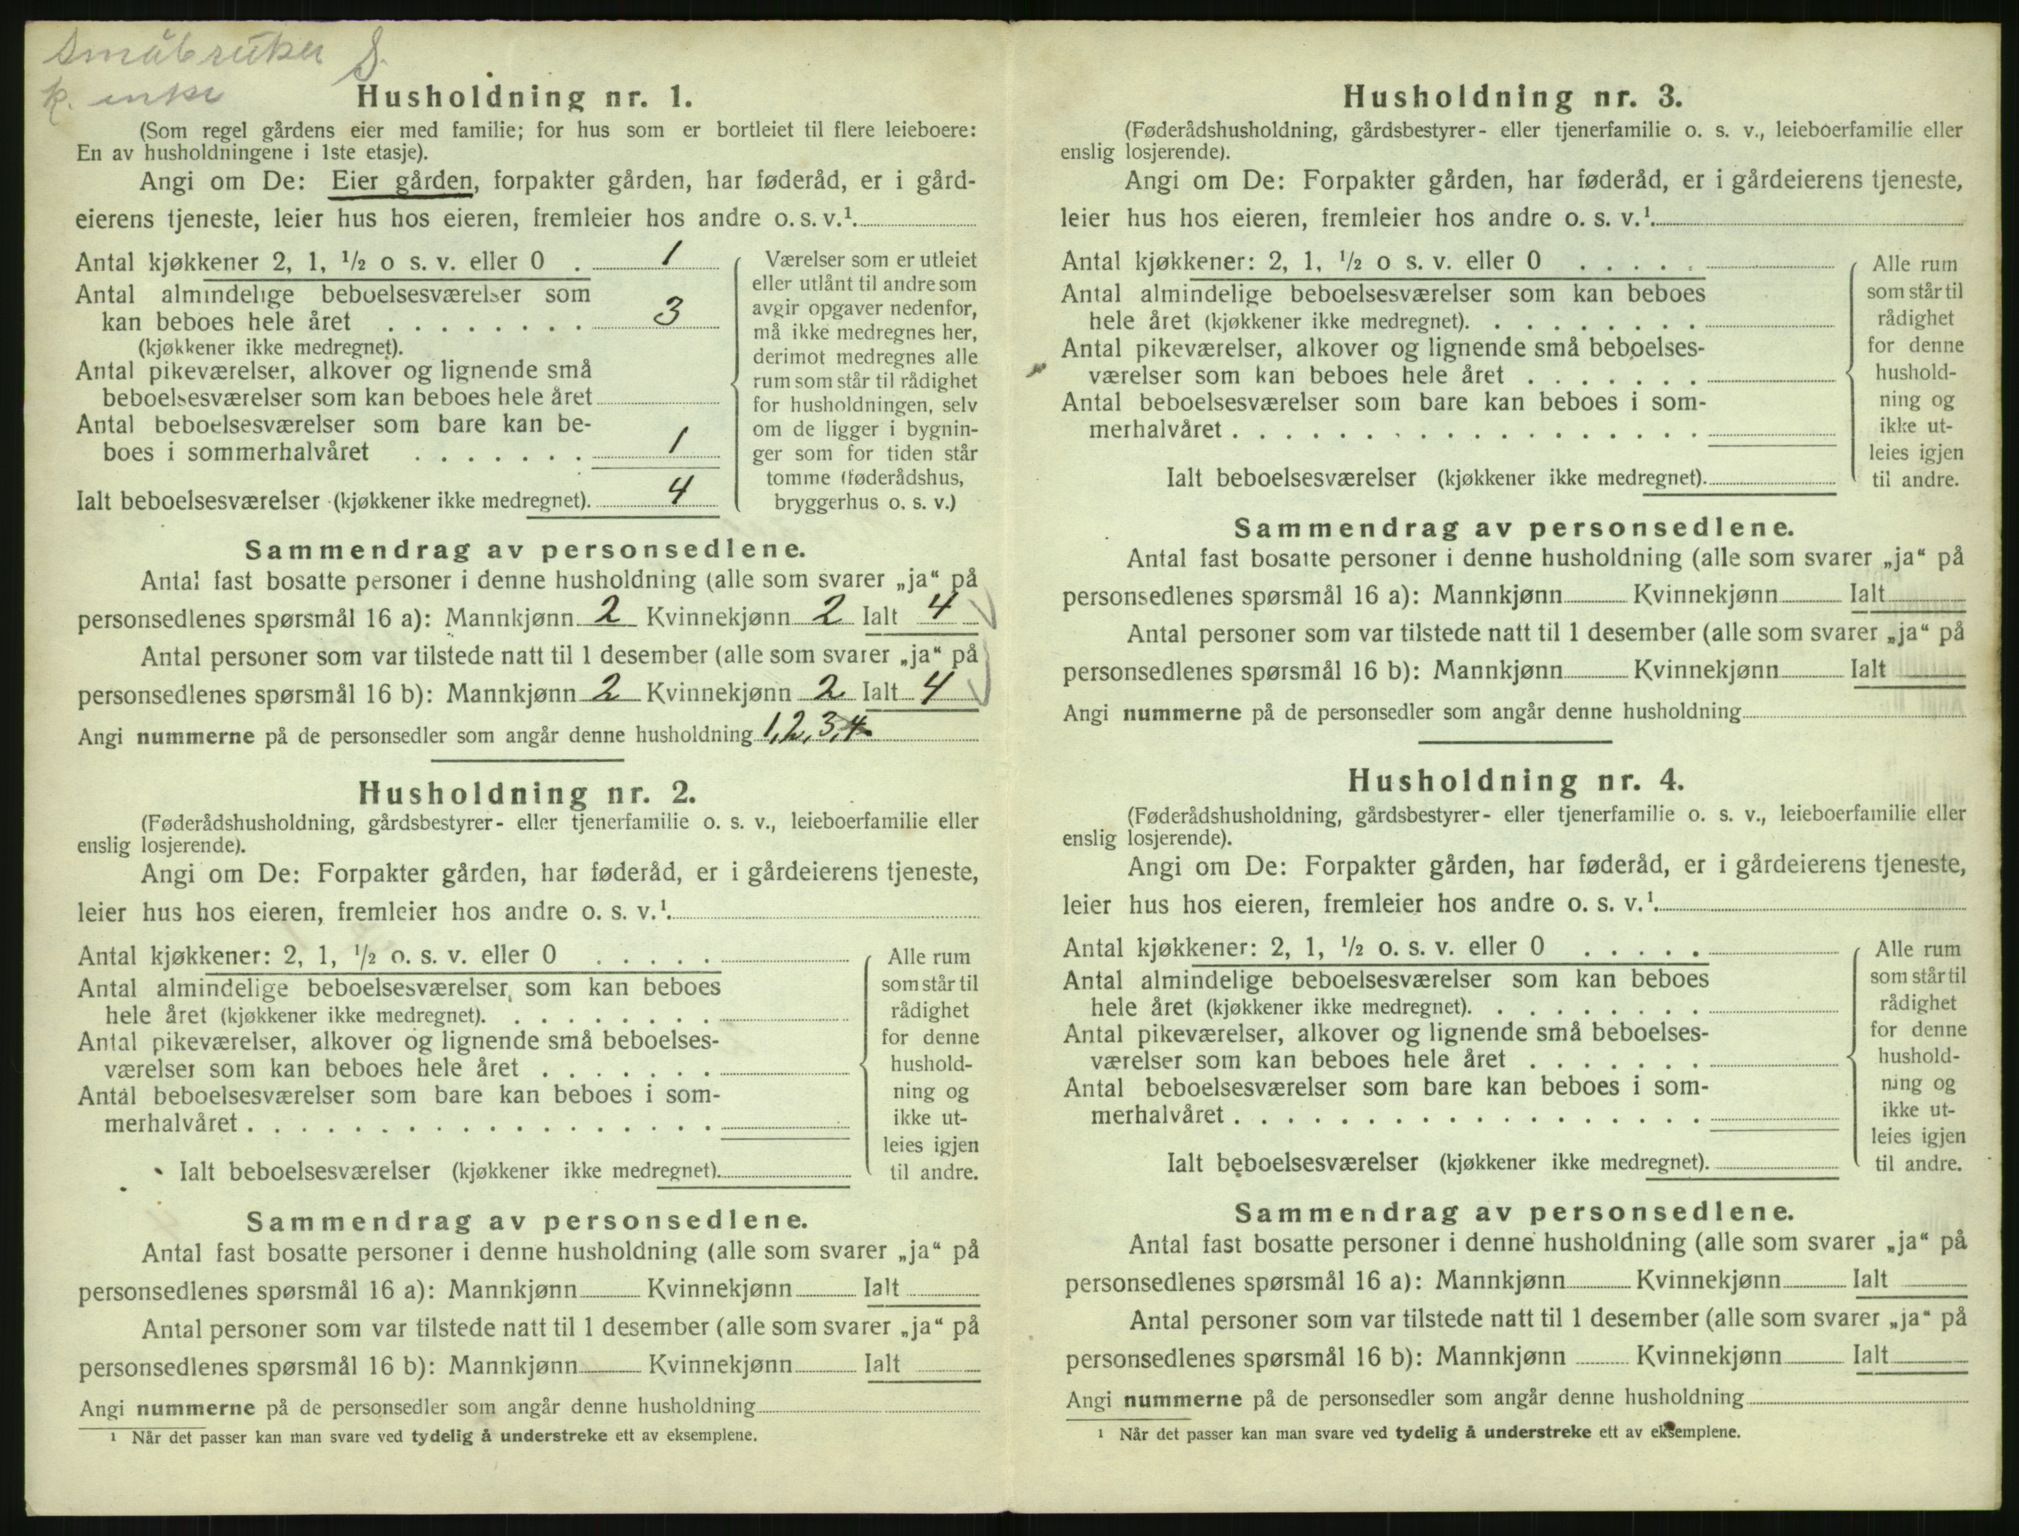 Småbruker S.
k. enke
Husholdning nr. 1.
(Som regel gårdens eier med familie; for hus som er bortleiet til flere leieboere:
En av husholdningene i 1ste etasje).
Angi om De: Eier gården, forpakter gården, har føderåd, er i gård-
eierens tjeneste, leier hus hos eieren, fremleier hos andre o. s. v.¹
Antal kjøkkener 2, 1, ½ o s. v. eller 0 . 1
Antal almindelige beboelsesværelser som
kan beboes hele året . . . . . . . . 3
(kjøkkener ikke medregnet).
Antal pikeværelser, alkover og lignende små
beboelsesværelser som kan beboes hele året
Antal beboelsesværelser som bare kan be-
boes i sommerhalvåret . . . . . . . 1
Ialt beboelsesværelser (kjøkkener ikke medregnet). 4
Værelser som er utleiet
eller utlånt til andre som
avgir opgaver nedenfor,
må ikke medregnes her,
derimot medregnes alle
rum som står til rådighet
for husholdningen, selv
om de ligger i bygnin-
ger som for tiden står
tomme (føderådshus,
bryggerhus o. s. v.)
Sammendrag av personsedlene.
Antal fast bosatte personer i denne husholdning (alle som svarer „ja“ på
personsedlenes spørsmål 16 a): Mannkjønn 2 Kvinnekjønn 2 Ialt 4
Antal personer som var tilstede natt til 1 desember (alle som svarer „ja“ på
personsedlenes spørsmål 16 b): Mannkjønn 2 Kvinnekjønn 2 Ialt 4
Angi nummerne på de personsedler som angår denne husholdning 1, 2, 3, 4
Husholdning nr. 2.
(Føderådshusholdning, gårdsbestyrer- eller tjenerfamilie o. s. v., leieboerfamilie eller
enslig losjerende).
Angi om De: Forpakter gården, har føderåd, er i gårdeierens tjeneste,
leier hus hos eieren, fremleier hos andre o. s. v.¹
Antal kjøkkener: 2, 1, ½ o. s. v. eller 0 . . . . .
Antal almindelige beboelsesværelser som kan beboes
hele året (kjøkkener ikke medregnet). . . . . . . . .
Antal pikeværelser, alkover og lignende små beboelses-
værelser som kan beboes hele året . . . . . . .
Antal beboelsesværelser som bare kan beboes i som-
merhalvåret . . . . . . . . . . . . . . . . . .
Ialt beboelsesværelser (kjøkkener ikke medregnet).
Alle rum
som står til
rådighet
for denne
hushold-
ning og
ikke ut-
leies igjen
til andre.
Sammendrag av personsedlene.
Antal fast bosatte personer i denne husholdning (alle som svarer „ja“ på
personsedlenes spørsmål 16 a): Mannkjønn Kvinnekjønn Ialt
Antal personer som var tilstede natt til 1 desember (alle som svarer „ja“ på
personsedlenes spørsmål 16 b): Mannkjønn Kvinnekjønn Ialt
Angi nummerne på de personsedler som angår denne husholdning
¹ Når det passer kan man svare ved tydelig å understreke ett av eksemplene.
Husholdning nr. 3.
(Føderådshusholdning, gårdsbestyrer- eller tjenerfamilie o. s. v., leieboerfamilie eller
enslig losjerende).
Angi om De: Forpakter gården, har føderåd, er i gårdeierens tjeneste,
leier hus hos eieren, fremleier hos andre o. s. v.¹
Antal kjøkkener: 2, 1, ½ o s. v. eller 0 . . . . .
Antal almindelige beboelsesværelser som kan beboes
hele året (kjøkkener ikke medregnet). . . . . . . . .
Antal pikeværelser, alkover og lignende små beboelses-
værelser som kan beboes hele året . . . . . . .
Antal beboelsesværelser som bare kan beboes i som-
merhalvåret . . . . . . . . . . . . . . . . . .
Ialt beboelsesværelser (kjøkkener ikke medregnet).
Alle rum
som står til
rådighet
for denne
hushold-
ning og
ikke ut-
leies igjen
til andre.
Sammendrag av personsedlene.
Antal fast bosatte personer i denne husholdning (alle som svarer „ja“ på
personsedlenes spørsmål 16 a): Mannkjønn Kvinnekjønn Ialt
Antal personer som var tilstede natt til 1 desember (alle som svarer „ja“ på
personsedlenes spørsmål 16 b): Mannkjønn Kvinnekjønn Ialt
Angi nummerne på de personsedler som angår denne husholdning
Husholdning nr. 4.
(Føderådshusholdning, gårdsbestyrer- eller tjenerfamilie o. s. v., leieboerfamilie eller
enslig losjerende).
Angi om De: Forpakter gården, har føderåd, er i gårdeierens tjeneste,
leier hus hos eieren, fremleier hos andre o. s. v.¹
Antal kjøkkener: 2, 1, ½ o. s. v. eller 0 . . . . .
Antal almindelige beboelsesværelser som kan beboes
hele året (kjøkkener ikke medregnet). . . . . . . . .
Antal pikeværelser, alkover og lignende små beboelses-
værelser som kan beboes hele året . . . . . . .
Antal beboelsesværelser som bare kan beboes i som-
merhalvåret . . . . . . . . . . . . . . . . . .
Ialt beboelsesværelser (kjøkkener ikke medregnet).
Alle rum
som står til
rådighet
for denne
hushold-
ning og
ikke ut-
leies igjen
til andre.
Sammendrag av personsedlene.
Antal fast bosatte personer i denne husholdning (alle som svarer „ja“ på
personsedlenes spørsmål 16 a): Mannkjønn Kvinnekjønn Ialt
Antal personer som var tilstede natt til 1 desember (alle som svarer „ja“ på
personsedlenes spørsmål 16 b): Mannkjønn Kvinnekjønn Ialt
Angi nummerne på de personsedler som angår denne husholdning
¹ Når det passer kan man svare ved tydelig å understreke ett av eksemplene.